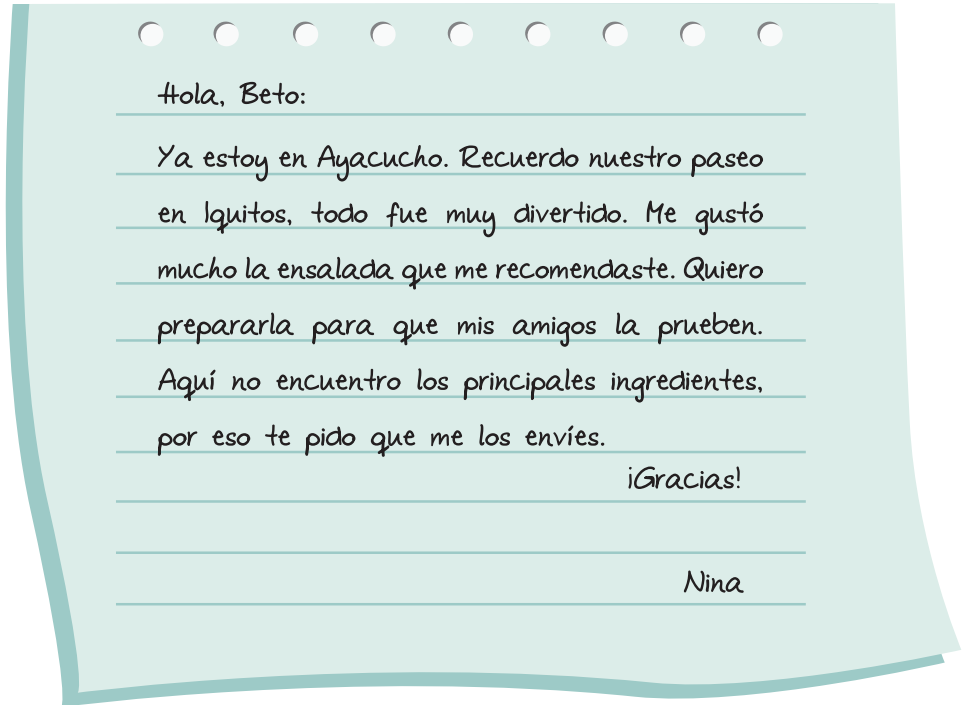 Hola, Beto:
Ya estoy en Ayacucho. Recuerdo nuestro paseo
en Iquitos, todo fue muy divertido. Me gustó
mucho la ensalada que me recomendaste. Quiero
prepararla para que mis amigos la prueben.
Aquí no encuentro los principales ingredientes,
por eso te pido que me los envíes.
¡Gracias!
Nina